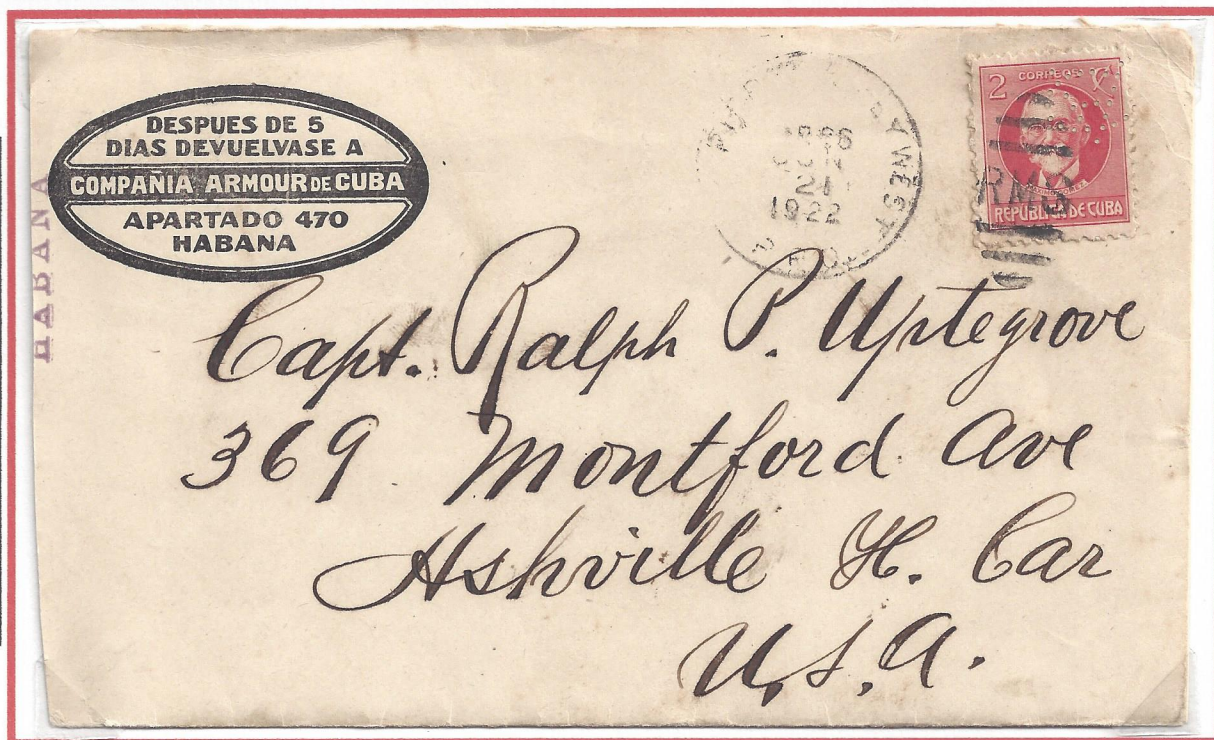 DESPUES DE 5
DIAS DEVUELVASE A
COMPAÑIA ARMOUR DE CUBA
APARTADO 470
HABANA
HABANA
KEY WEST
1922
2 CORREOS
MAXIMO GOMEZ
REPUBLICA DE CUBA
RMS
Capt. Ralph P. Uptegrove
369 Montford Ave
Ashville N. Car
U.S.A.